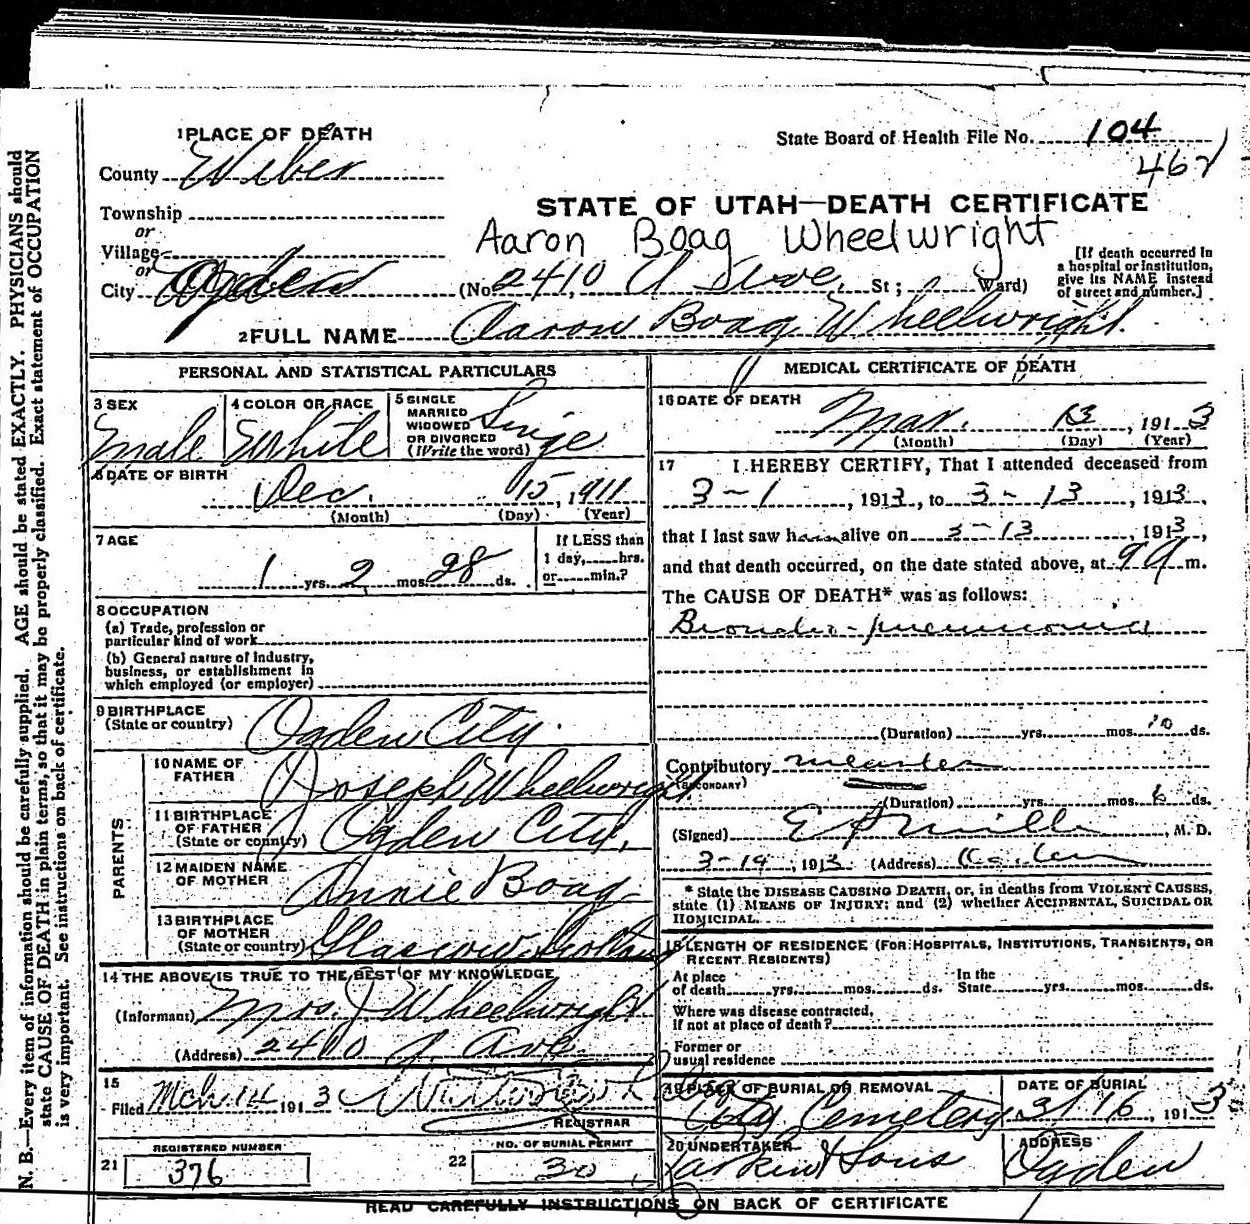 1 PLACE OF DEATH
State Board of Health File No. 104
462
County Weber
STATE OF UTAH—DEATH CERTIFICATE
Township
or
Village
or
Aaron Boag Wheelwright
City Ogden (No. 2410 A Ave. St; Ward)
[If death occurred in
a hospital or institution,
give its NAME instead
of street and number.]
2 FULL NAME Aaron Boag Wheelwright
PERSONAL AND STATISTICAL PARTICULARS
3 SEX
Male
4 COLOR OR RACE
White
5 SINGLE
MARRIED
WIDOWED
OR DIVORCED
(Write the word)
Singe
6 DATE OF BIRTH
Dec. 15, 1911
(Month) (Day) (Year)
7 AGE
1 yrs. 2 mos. 28 ds.
If LESS than
1 day, hrs.
or min.?
8 OCCUPATION
(a) Trade, profession or
particular kind of work
(b) General nature of industry,
business, or establishment in
which employed (or employer)
9 BIRTHPLACE
(State or country)
Ogden City.
PARENTS
10 NAME OF
FATHER
Joseph Wheelwright
11 BIRTHPLACE
OF FATHER
(State or country)
Ogden City,
12 MAIDEN NAME
OF MOTHER
Annie Boag
13 BIRTHPLACE
OF MOTHER
(State or country)
Glascow Scotland
14 THE ABOVE IS TRUE TO THE BEST OF MY KNOWLEDGE
(Informant) Mrs. J Wheelwright
(Address) 2410 A. Ave
15
Filed Mch 14 1913
REGISTRAR
REGISTERED NUMBER
21 376
NO. OF BURIAL PERMIT
22 30
MEDICAL CERTIFICATE OF DEATH
16 DATE OF DEATH
Mar. 13, 1913
(Month) (Day) (Year)
17 I HEREBY CERTIFY, That I attended deceased from
3-1, 1913, to 3-13, 1913,
that I last saw him alive on 3-13, 1913,
and that death occurred, on the date stated above, at 9 A m.
The CAUSE OF DEATH* was as follows:
Broncho-pneumonia
(Duration) yrs. mos. 10 ds.
Contributory measles
(SECONDARY)
(Duration) yrs. mos. ds.
(Signed) M. D.
3-14, 1913 (Address) Ogden
* State the DISEASE CAUSING DEATH, or, in deaths from VIOLENT CAUSES,
state (1) MEANS OF INJURY; and (2) whether ACCIDENTAL, SUICIDAL OR
HOMICIDAL.
18 LENGTH OF RESIDENCE (FOR HOSPITALS, INSTITUTIONS, TRANSIENTS, OR
RECENT RESIDENTS)
At place
of death yrs. mos. ds.
In the
State yrs. mos ds.
Where was disease contracted,
if not at place of death?
Former or
usual residence
19 PLACE OF BURIAL OR REMOVAL
City Cemetery
DATE OF BURIAL
3/16, 1913
20 UNDERTAKER
Larkin & Sons
ADDRESS
Ogden
READ CAREFULLY INSTRUCTIONS ON BACK OF CERTIFICATE
N. B.—Every item of information should be carefully supplied. AGE should be stated EXACTLY. PHYSICIANS should
state CAUSE OF DEATH in plain terms, so that it may be properly classified. Exact statement of OCCUPATION
is very important. See instructions on back of certificate.